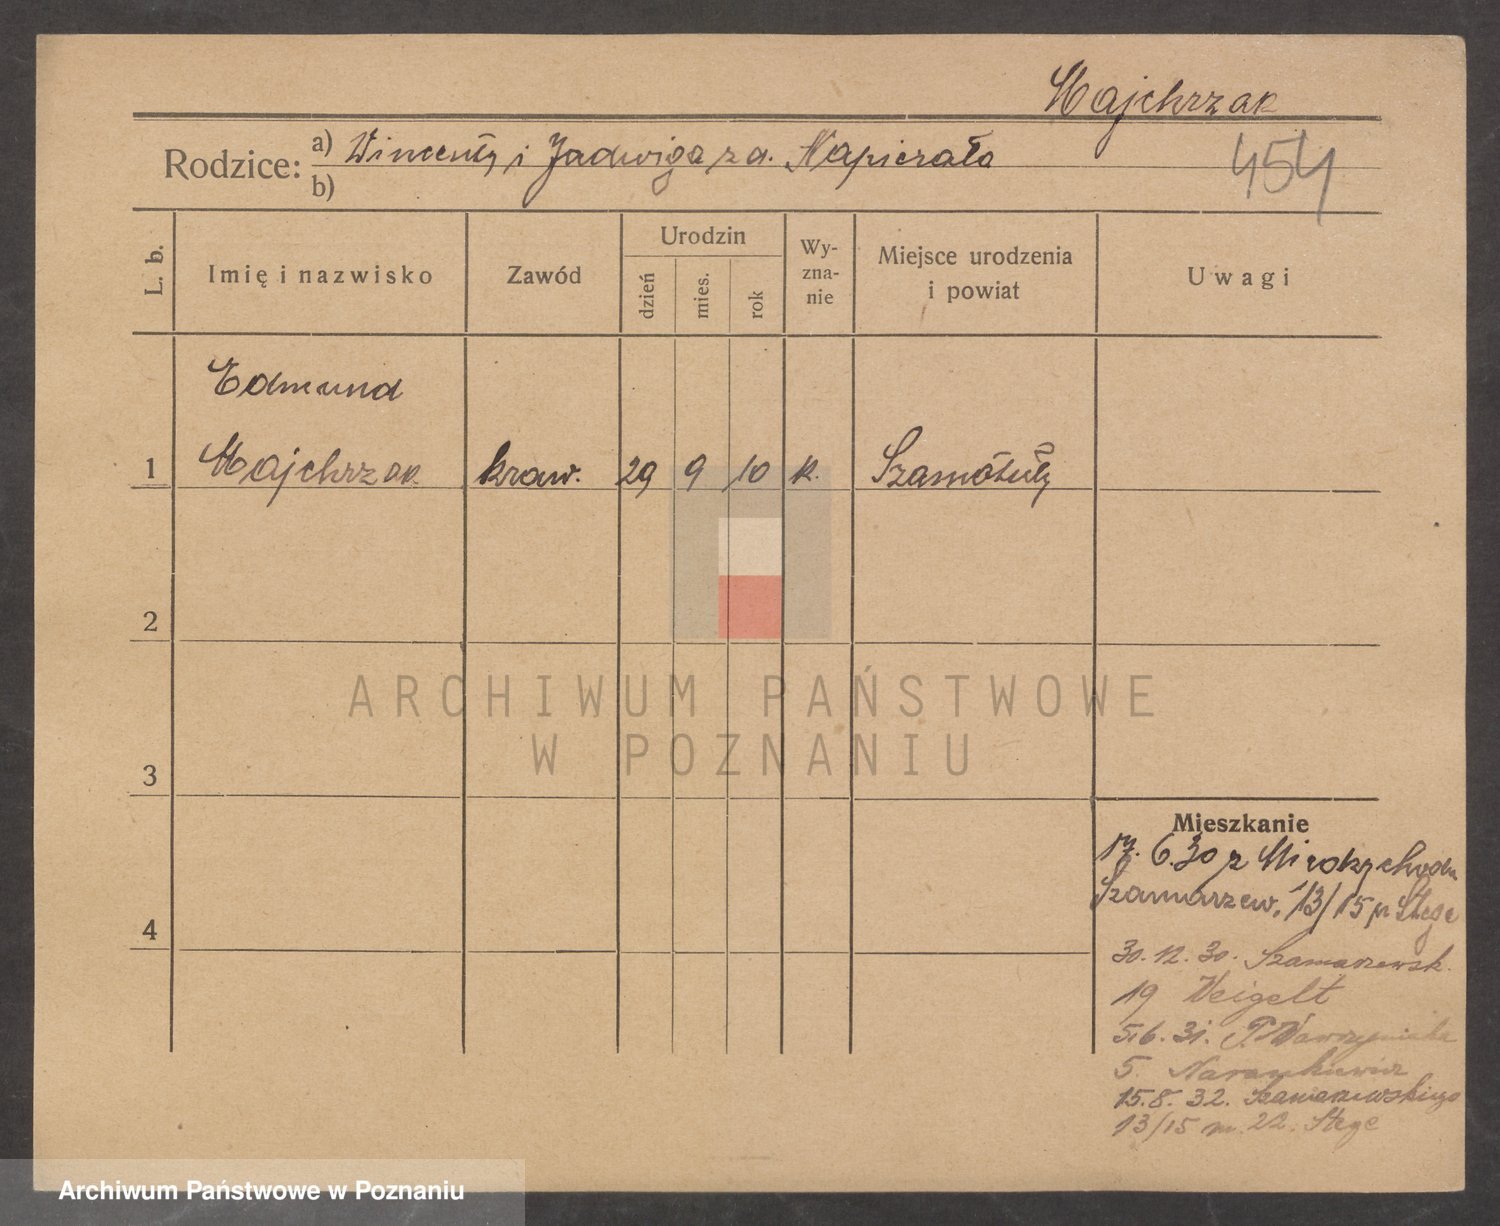 Majchrzak
Rodzice: a) Wincenty i Jadwiga z d. Napierała
454
b)
L. b.
Imię i nazwisko
Zawód
Urodzin
dzień
mies.
rok
Wy-
zna-
nie
Miejsce urodzenia
i powiat
Uwagi
Edmund
1 Majchrzak kraw. 29 9 10 k. Szamotuły
2
3
4
Mieszkanie
17. 6. 30 z Międzychodu
Szamarzew. 13/15 p Stege
30. 12. 30. Szamarzewsk.
19 Weigelt
5. 6. 31. P. Wawrzyniaka
5.
15. 8. 32. Szamarzewskiego
13/15 m. 22. Stege
ARCHIWUM PAŃSTWOWE
W POZNANIU
Archiwum Państwowe w Poznaniu